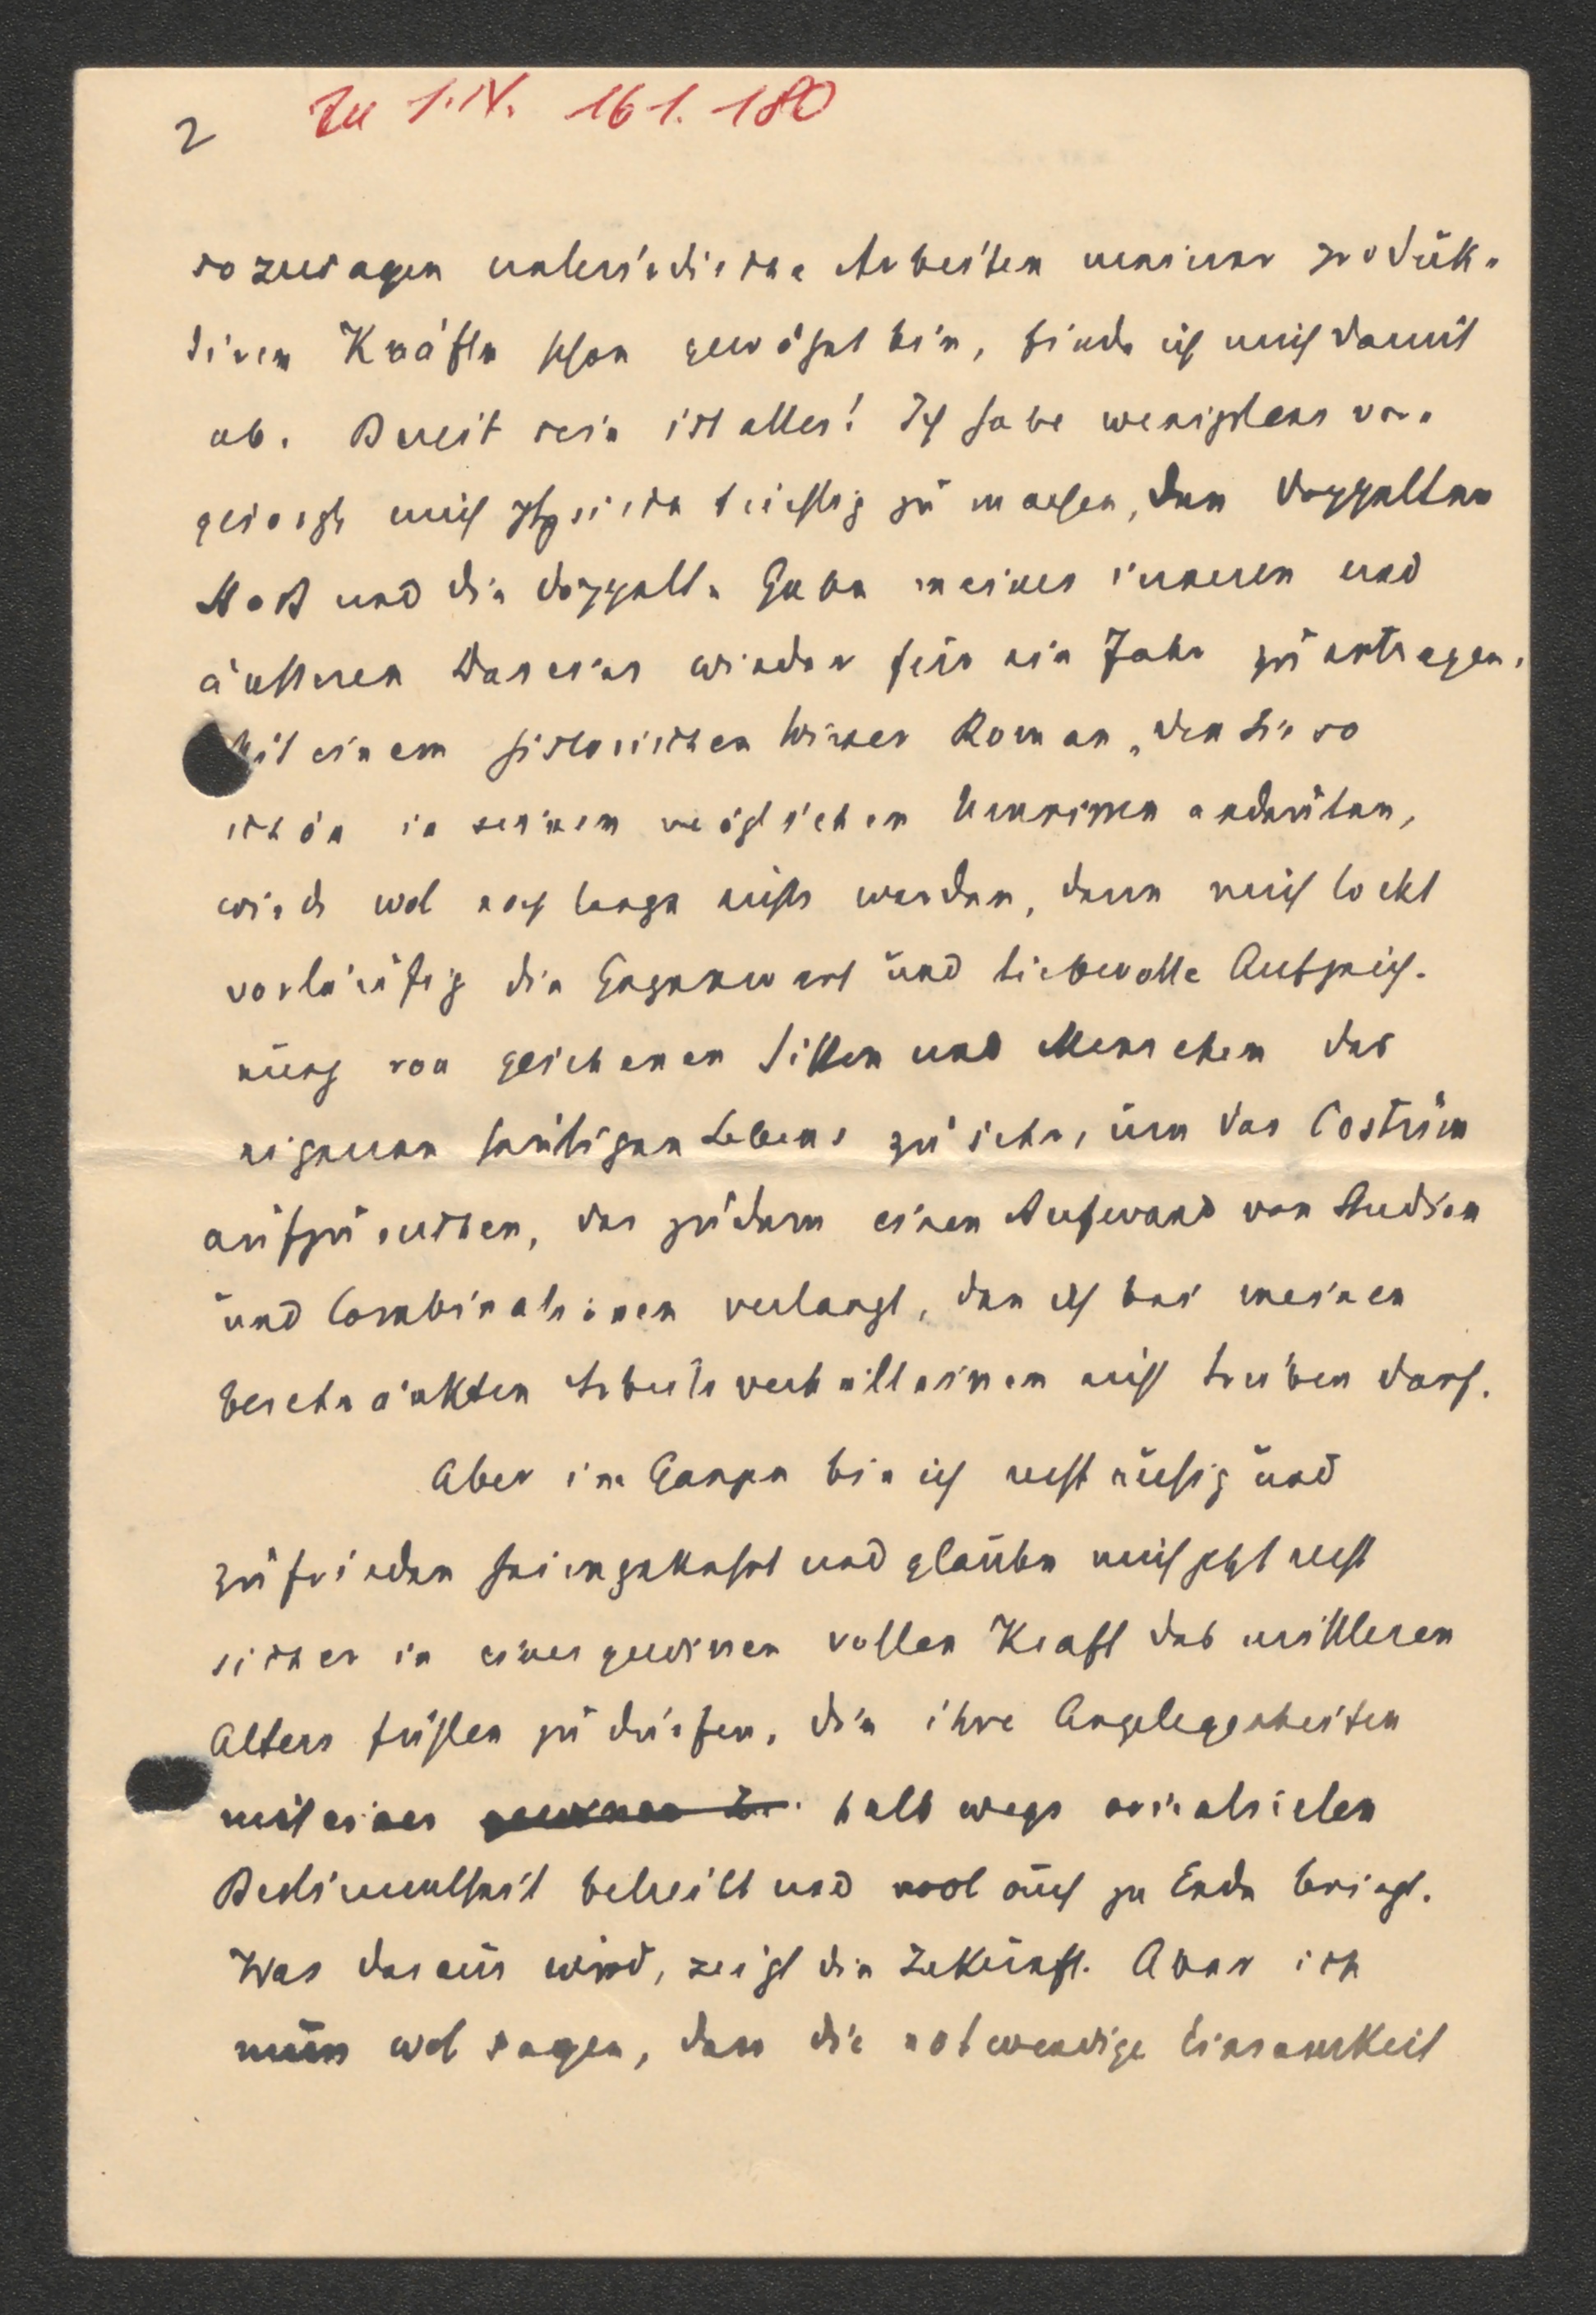 2 Zu S.IV. 161.180
sozusagen unterirdische Arbeiten meiner produk-
tiven Kräfte schon gewöhnt bin, finde ich mich damit
ab. Bereit sein ist alles! Ich habe wenigstens vor-
gesorgt mich physisch tüchtig zu machen, den doppelten
und die doppelte Gabe meines inneren und
äusseren Daseins wieder für ein Jahr zu ertragen.
Mit einem historischen Wiener Roman, den Sie so
schön in seinen möglichen Umrissen andeuten,
wird wol noch lange nichts werden, denn mich lockt
vorläufig die Gegenwart und liebevolle Aufzeich-
nung von gesehenen Sitten und Menschen des
eigenen heutigen Lebens zu sehr, um das Costüm
aufzusuchen, das zudem einen Aufwand von Studien
und Combinationen verlangt, den ich bei meinen
beschränkten Arbeitsverhältnissen nicht treiben darf.
Aber im Ganzen bin ich recht ruhig und
zufrieden heimgekehrt und glaube mich jetzt recht
sicher in einer gewissen vollen Kraft des mittleren
Alters fühlen zu dürfen, die ihre Angelegenheiten
mit einer halbwegs
Bestimmtheit betreibt und wol auch zu Ende bringt.
Was daraus wird, zeigt die Zukunft. Aber ich
muss wol sagen, dass die notwendige Einsamkeit